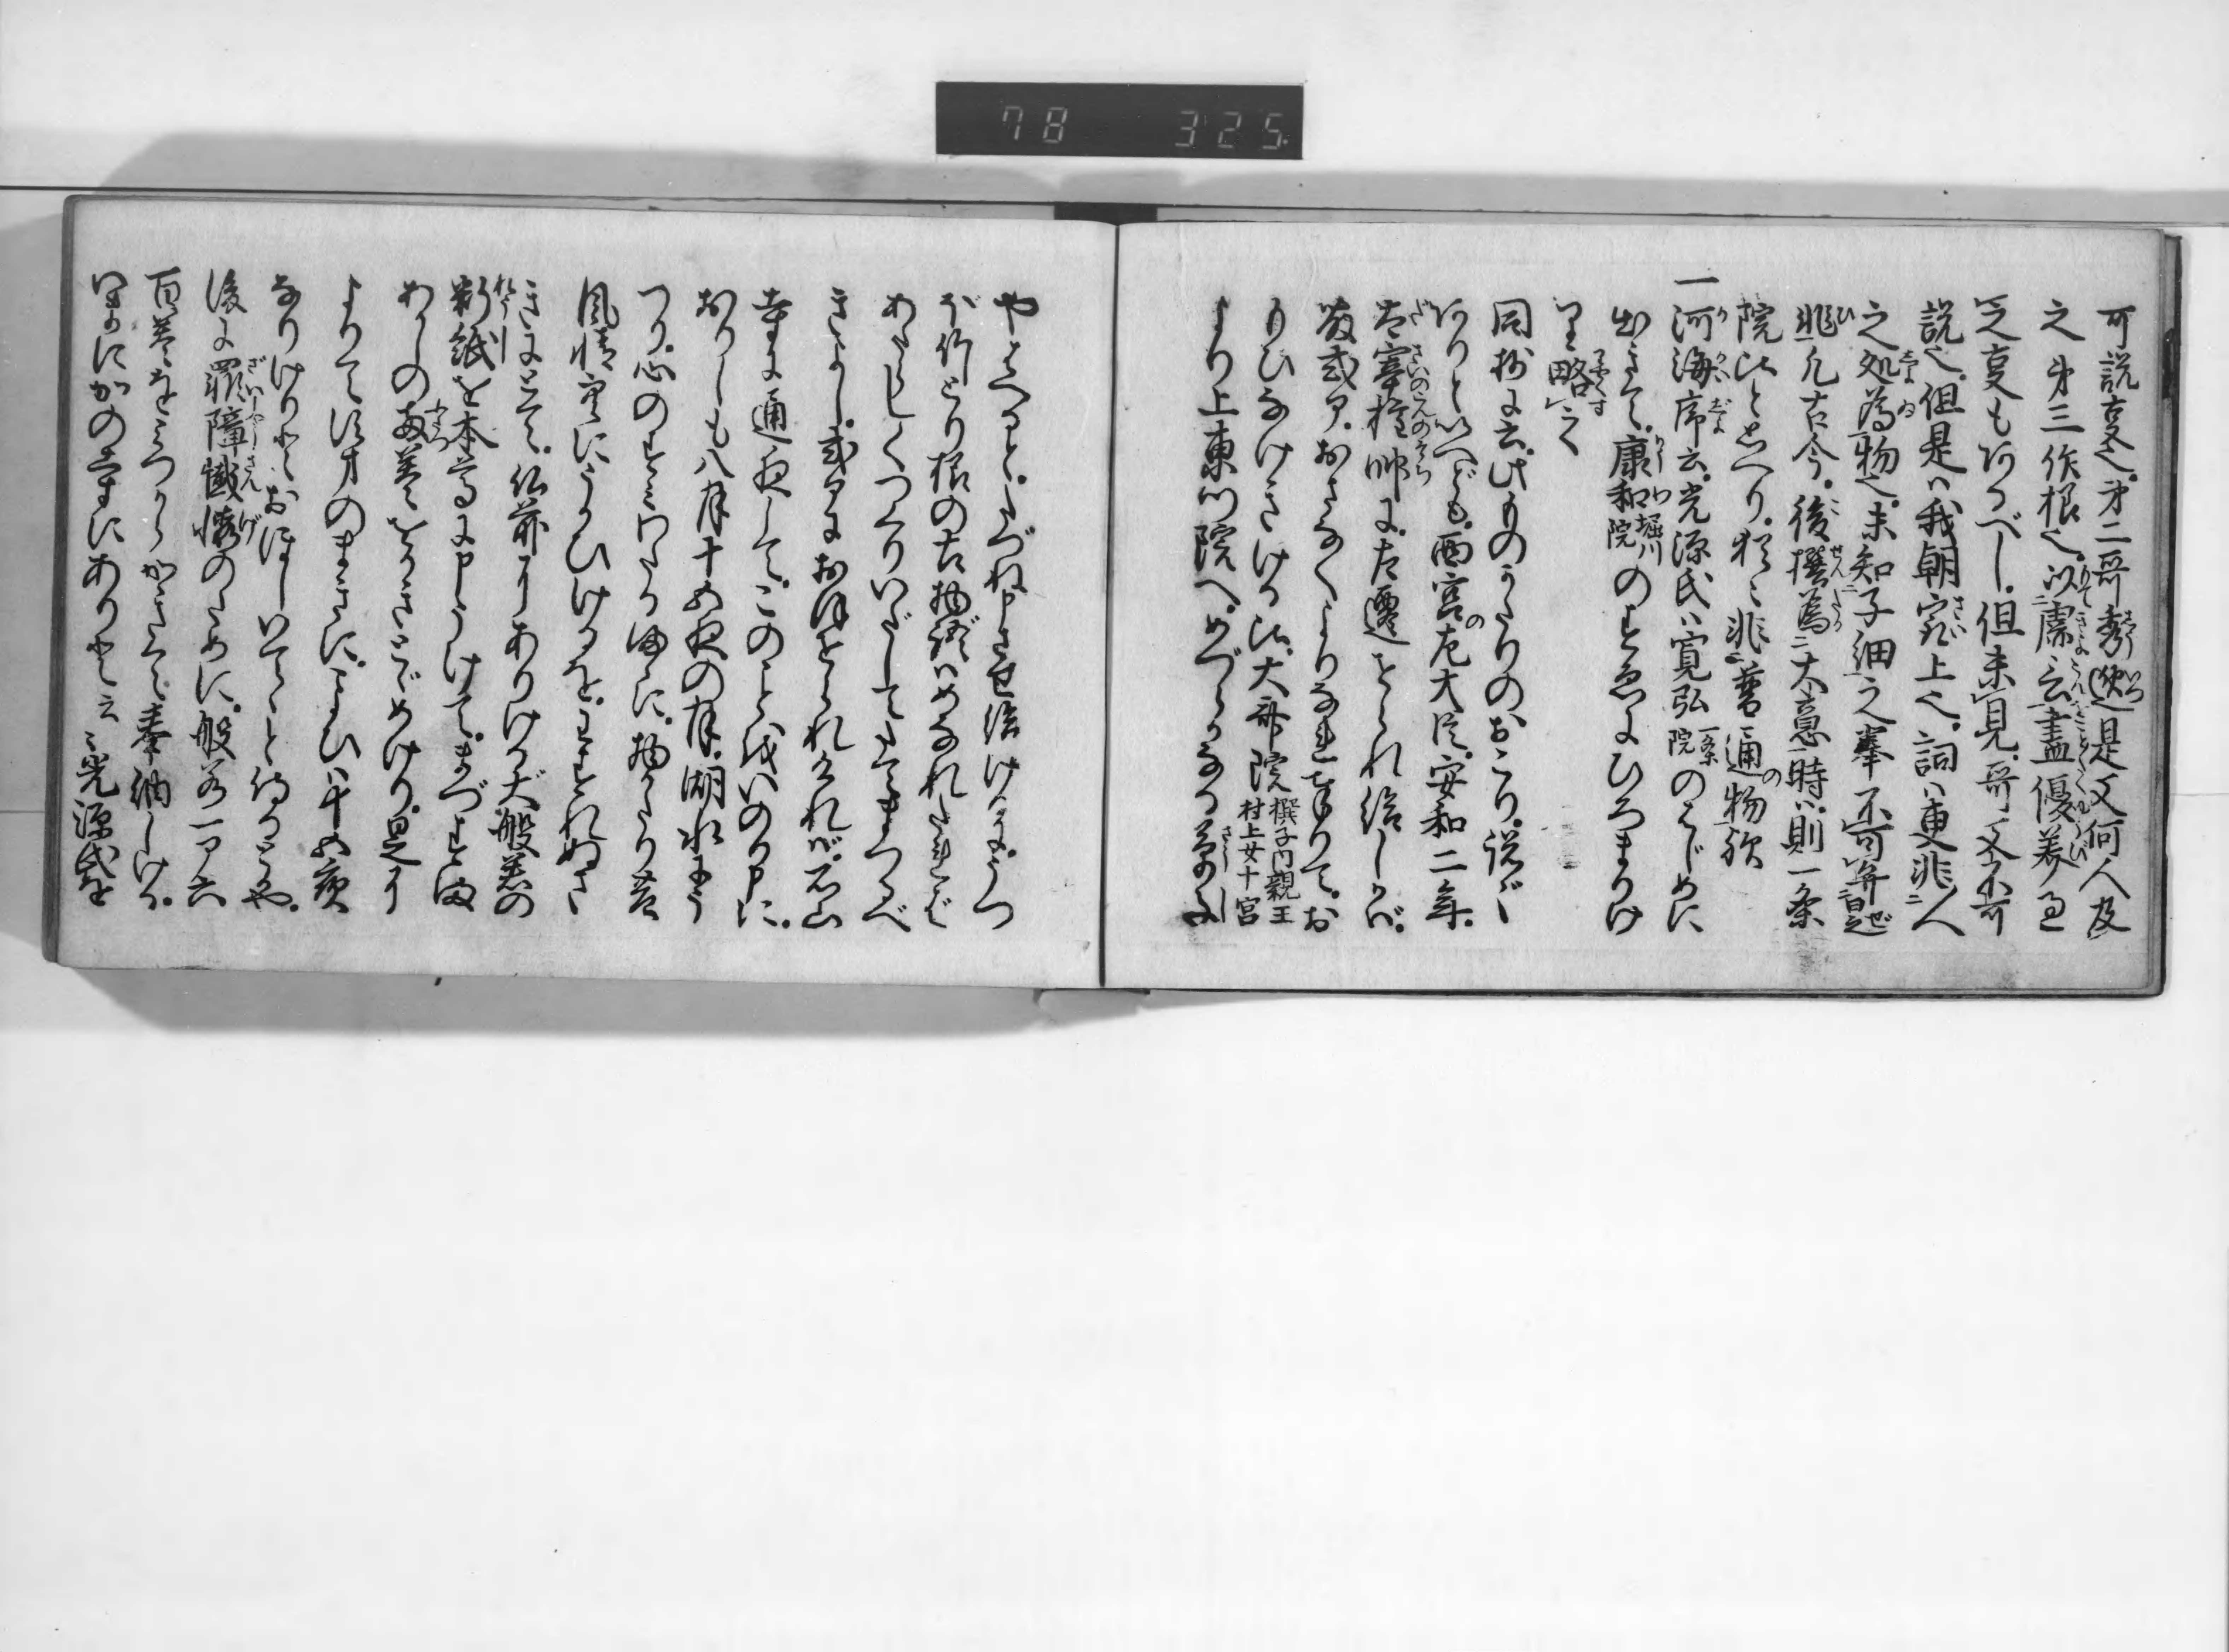 78 325
可説夏也。才二哥秀逸是又何人及
之。才三作根也。以濂云盡優美過
之夏もあるべし。但未見哥又不可
説也。但是ハ我朝寂上也。詞ハ更非人
之処為物也。未知子細之輩不可算日是
非。凡古今。後撰為大意時ハ則一条
院比と云へり。猶々非普通の物歟
一河海序云。光源氏ハ寛弘一条院のはじめに
出きて。康和堀川院のすゑにひろまりけ
りと略之
同抄に云。此ものがたりのおこり。説々
ありといへども。西宮の左大臣。安和二年。
太宰権帥に。左遷せられ給しかば。
藤式部。おさなくよりなれ奉りて。お
もひなげきける比。大斎院撰子内親王村上女十宮
より上東門院へ。めづらかなる草子
や侍ると。たづね申させ給けるに。うつ
ほ竹とり様の古物語ハめなれたれば
あたらしくつくりいだしてたてまつるべ
きよし。式部におほせられければ。石山
寺に通夜して。このことをいのり申に。
おりしも八月十五夜の月。湖水にう
つり。心のすみわたるまゝに。物がたりの
風情空にうかひけるを。わすれぬさ
きにとて。仏前にありける大般若の
料紙を本尊に申うけて。まづすま
あかしの両巻をかきとゞめけり。是に
よりてすまのまきに。こよひハ十五夜
なりけりと。おほしいでゝと侍るとかや。
後に罪障懺悔のために。般若一部六
百巻をみづからかきて。奉納しける。
いまにかの寺にありと云々。光源氏を